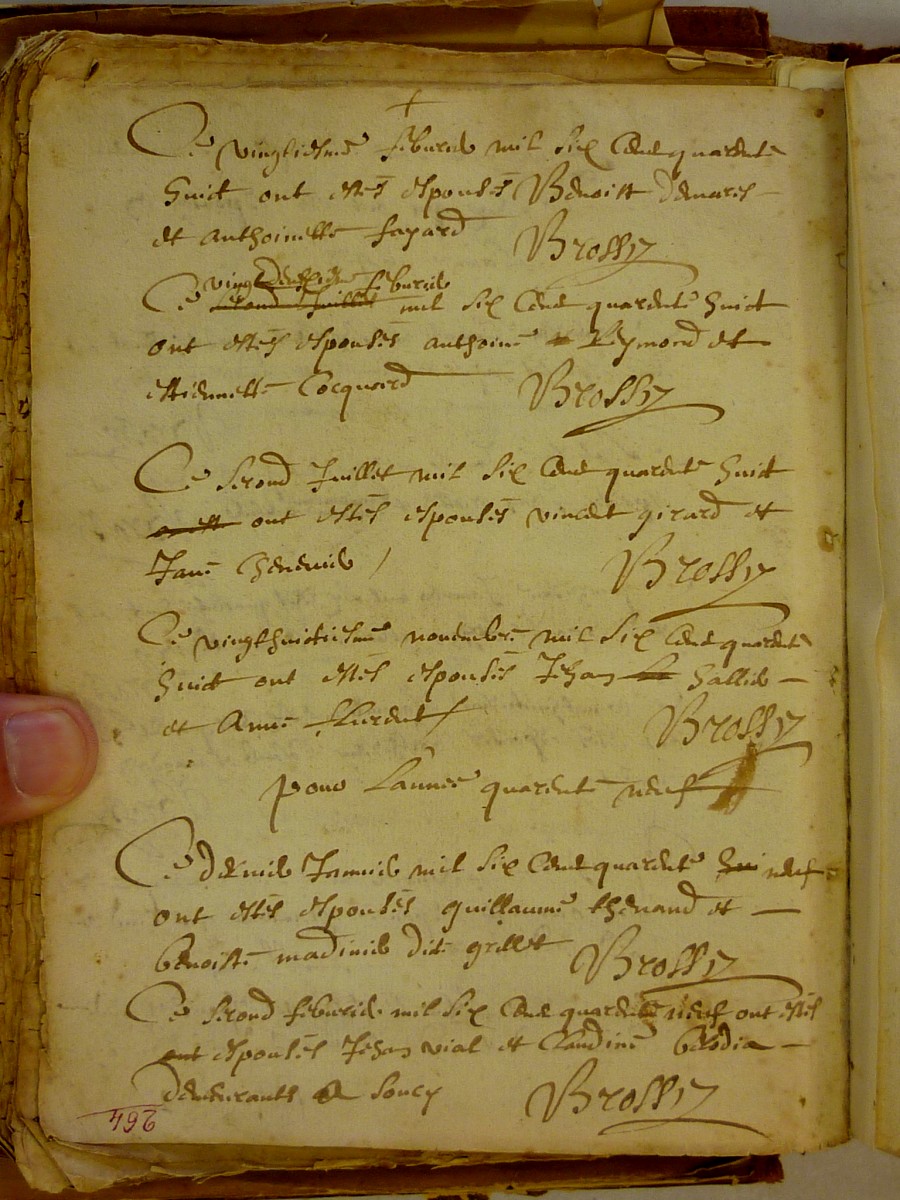 Ce vingtiesme feburier mil six cent quarente
huict ont estés espousés Benoist Demares
et Anthoinette Fayard Brossy
vingt feburier
Ce second Juillet mil six cent quarente huict
ont estés espousés anthoine Reymond et
estiennette Cocquard Brossy
Ce second Juillet mil six cent quarente huict
ont estés espousés vincent girard et
Jane Brossy
Ce vingthuictiesme novembre mil six cent quarente
huict ont estés espousés Jehan hallier
et Anne Brossy
pour L'annee quarente neuf
Ce dernier Janvier mil six cent quarente hui neuf
ont estés espousés guillaume thevand et
benoiste madinier dite grillet Brossy
Ce second feburier mil six cent quarente neuf ont estés
ont espousés Jehan vial et Claudine
demeurants a soucy Brossy
496